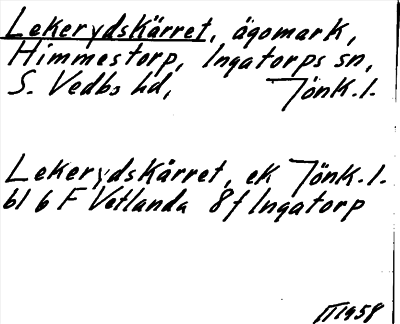 Lekerydskärret, ägomark,
Himmestorp, Ingatorps sn,
S. Vedbo hd, Jönk.l.
Lekerydskärret, ek Jönk.l.
bl 6 F Vetlanda 8f Ingatorp
1958